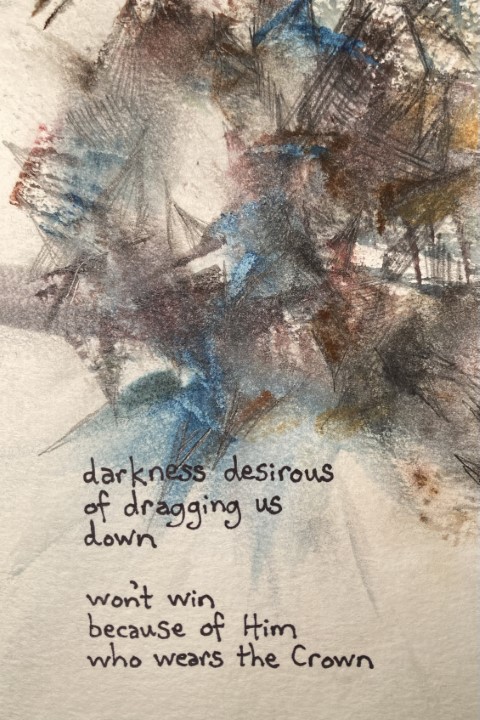 darkness desirous
of dragging us
down
won't win
because of Him
who wears the Crown